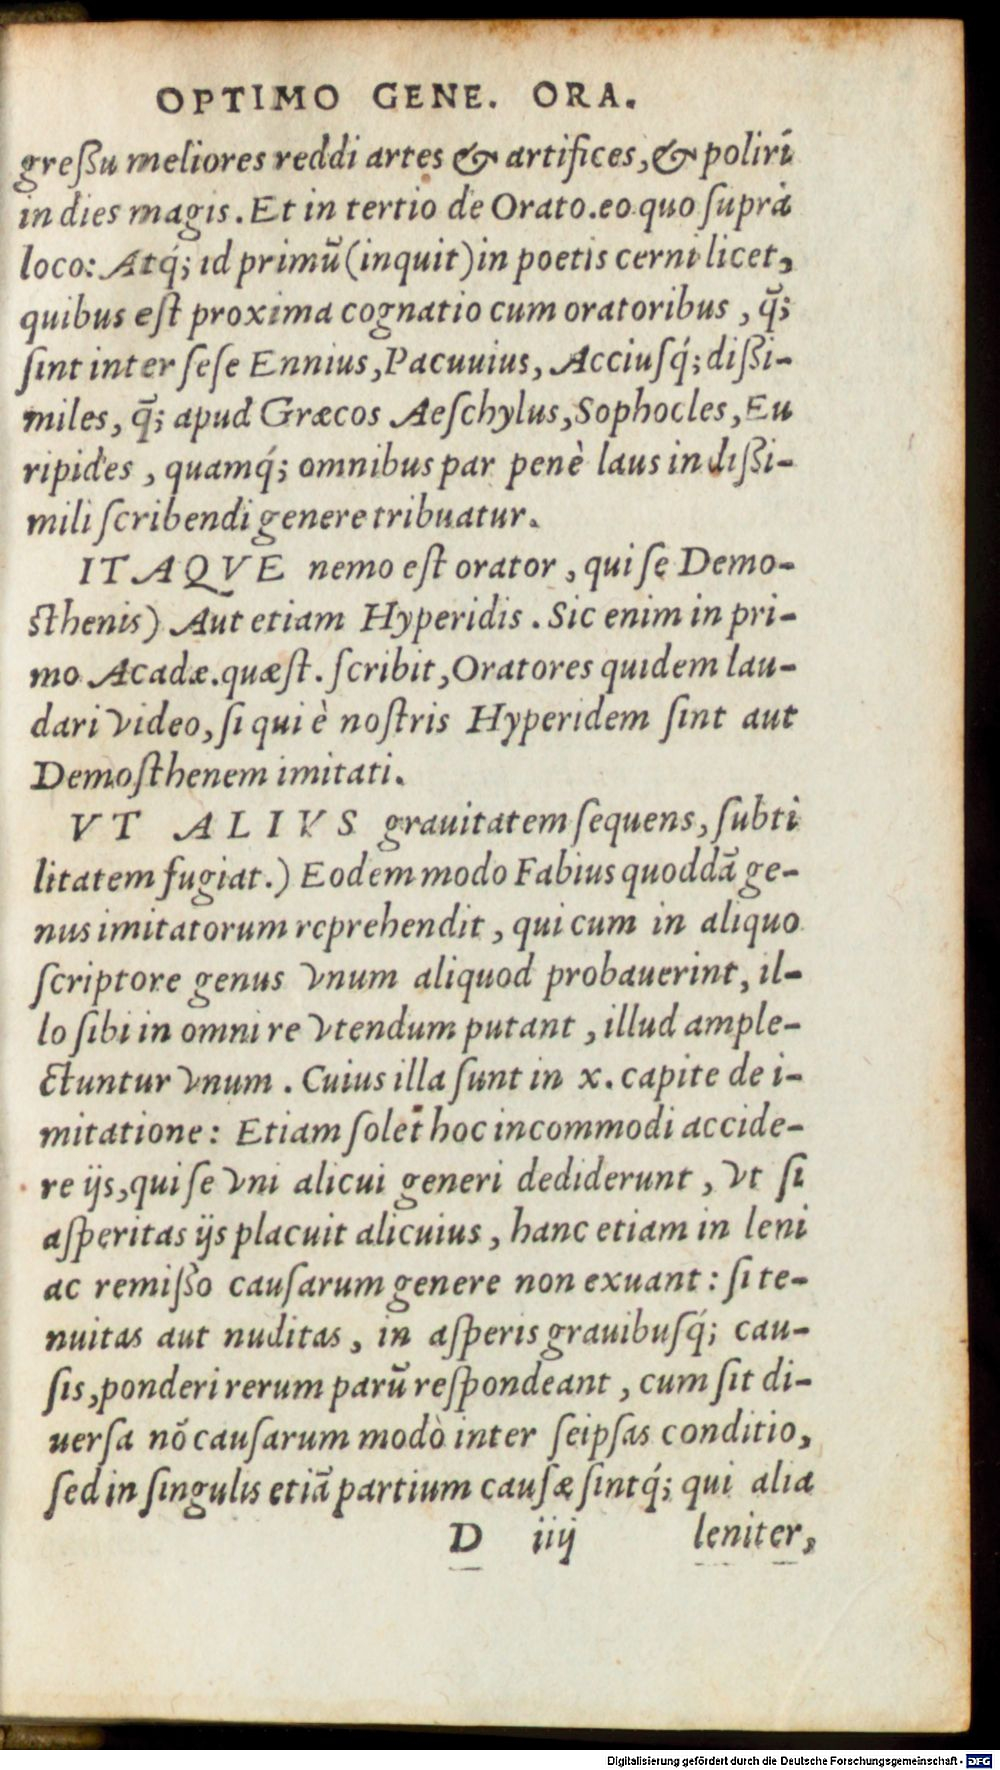 OPTIMO GENE. ORA.
greſſu meliores reddi artes & artifices, & poliri
in dies magis. Et in tertio de Orato. eo quo ſuprà
loco: Atq́; id primū (inquit) in poetis cerni licet,
quibus eſt proxima cognatio cum oratoribus, q̄;
ſint inter ſeſe Ennius, Pacuuius, Acciuſq́; diſſi-
miles, q̄; apud Græcos Aeſchylus, Sophocles, Eu
ripides, quamq́; omnibus par penè laus in diſſi-
mili ſcribendi genere tribuatur.
ITAQVE nemo eſt orator, qui ſe Demo-
ſthenis) Aut etiam Hyperidis. Sic enim in pri-
mo Acadæ. quæſt. ſcribit, Oratores quidem lau-
dari video, ſi qui è noſtris Hyperidem ſint aut
Demoſthenem imitati.
VT ALIVS grauitatem ſequens, ſubti
litatem fugiat.) Eodem modo Fabius quoddā ge-
nus imitatorum reprehendit, qui cum in aliquo
ſcriptore genus vnum aliquod probauerint, il-
lo ſibi in omni re vtendum putant, illud ample-
ctuntur vnum. Cuius illa ſunt in x. capite de i-
mitatione: Etiam ſolet hoc incommodi accide-
re ijs, qui ſe vni alicui generi dediderunt, vt ſi
aſperitas ijs placuit alicuius, hanc etiam in leni
ac remiſſo cauſarum genere non exuant: ſi te-
nuitas aut nuditas, in aſperis grauibuſq́; cau-
ſis, ponderi rerum parū reſpondeant, cum ſit di-
uerſa nō cauſarum modò inter ſeipſas conditio,
ſed in ſingulis etiā partium cauſæ ſintq́; qui alia
D iiij leniter,
Digitalisierung gefördert durch die Deutsche Forschungsgemeinschaft - DFG